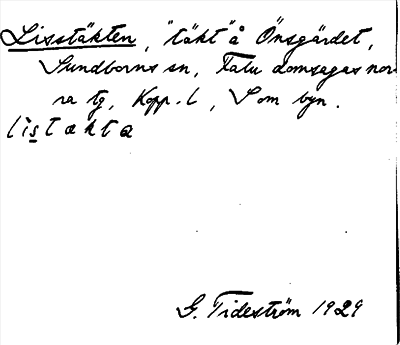 Lisstäkten, "täkt" å Önsgärdet,
Sundborns sn, Falu domsagas nor-
ra tg, Kopp. l, S om byn.
lìstækta
G. Tideström 1929